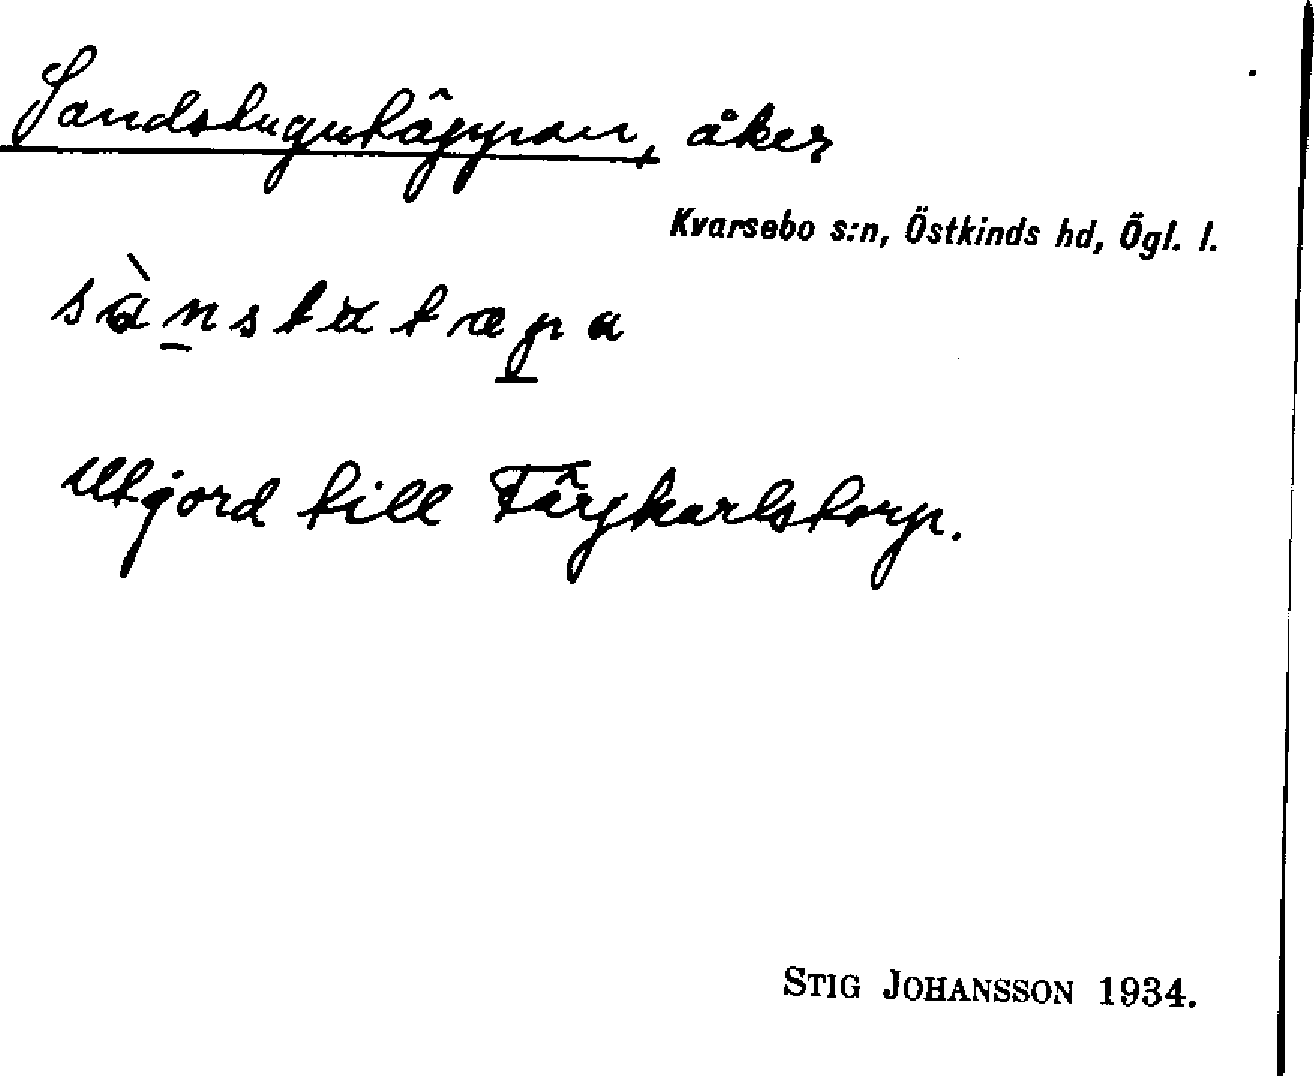 Sandstugutäppan, åker
Kvarsebo s:n, Östkinds hd, Ögl. l.
Utjord till Färjkarlstorp.
STIG JOHANSSON 1934.